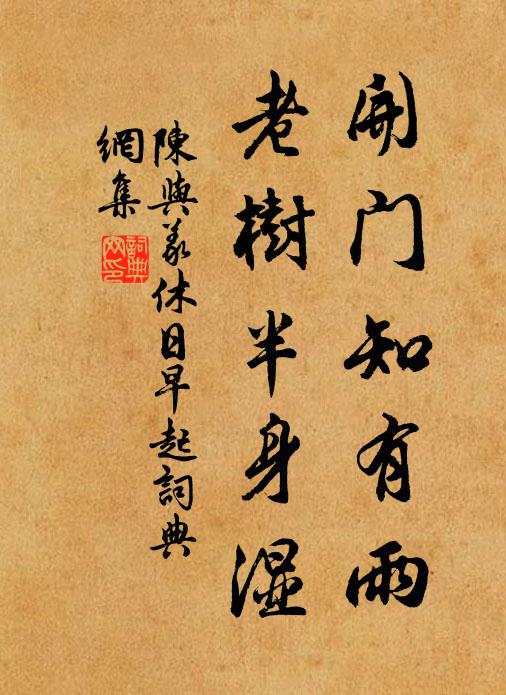 開门知有雨
老樹半身濕
陳與義休日早起詞典
網集
詞典
网印